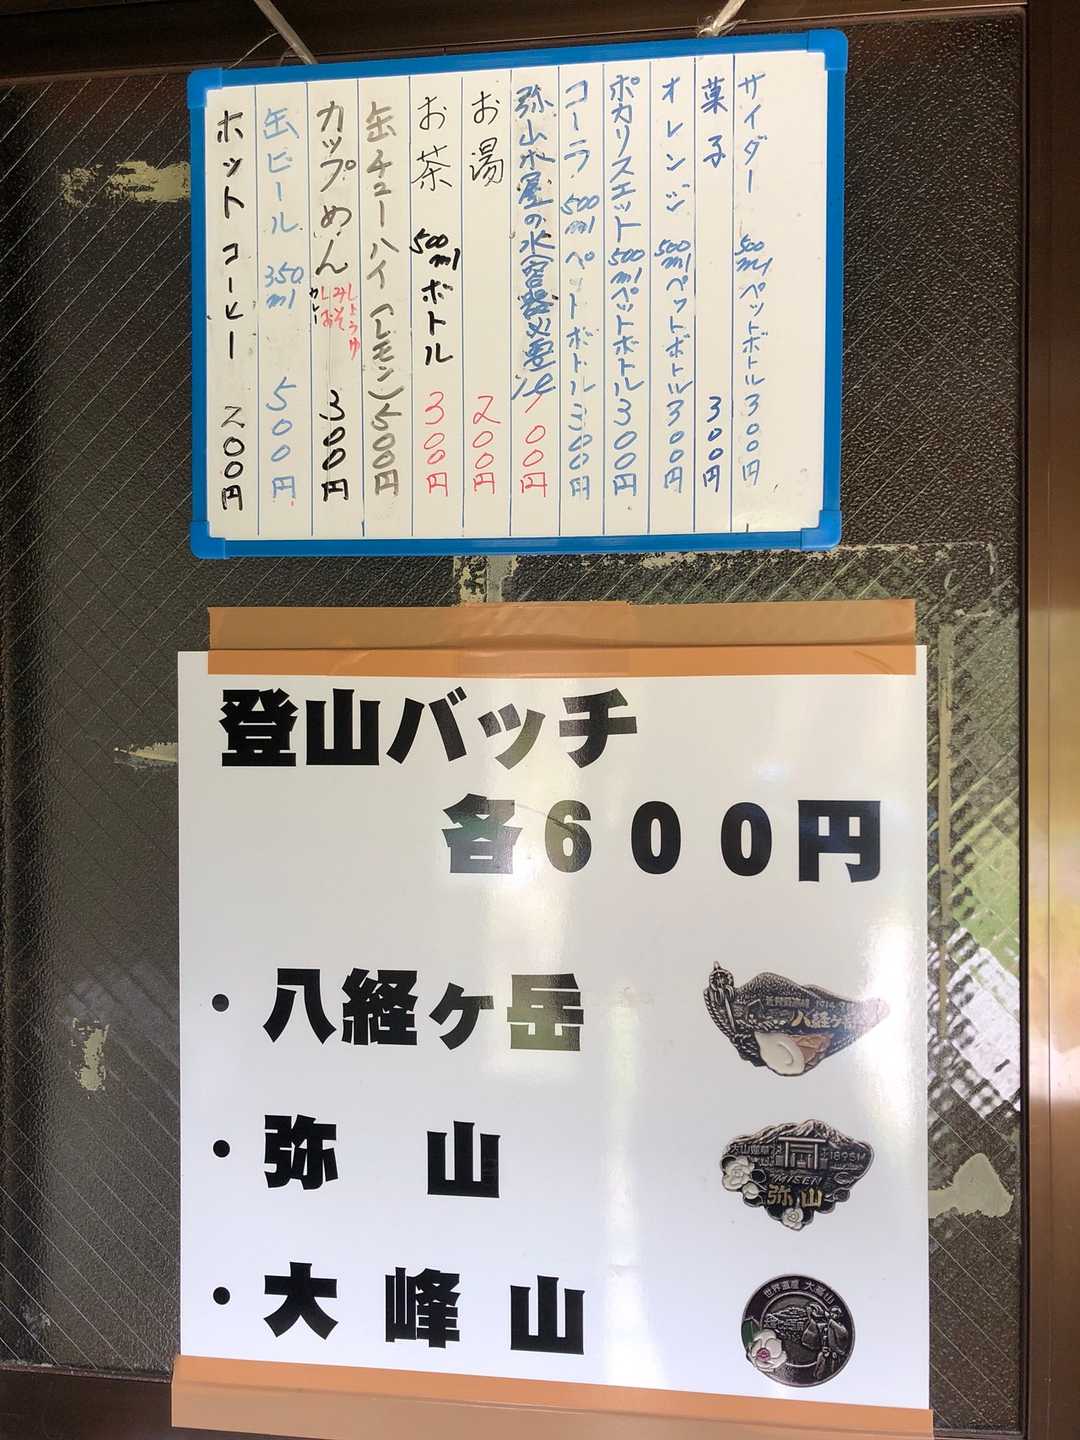 サイダー 500ml ペットボトル 300円
菓子 300円
オレンジ 500ml ペットボトル 300円
ポカリスエット 500ml ペットボトル 300円
コーラ 500ml ペットボトル 300円
弥山小屋の水(容器必要) 1ℓ 100円
お湯 200円
お茶 500mlボトル 300円
缶チューハイ(レモン) 500円
カップめん しょうゆ みそ しお カレー 300円
缶ビール 350ml 500円
ホットコーヒー 200円
登山バッチ
各600円
・八経ヶ岳
1914.9
八経ヶ
・弥 山
1895M
MISEN
弥山
・大 峰 山
世界遺産 大峯山